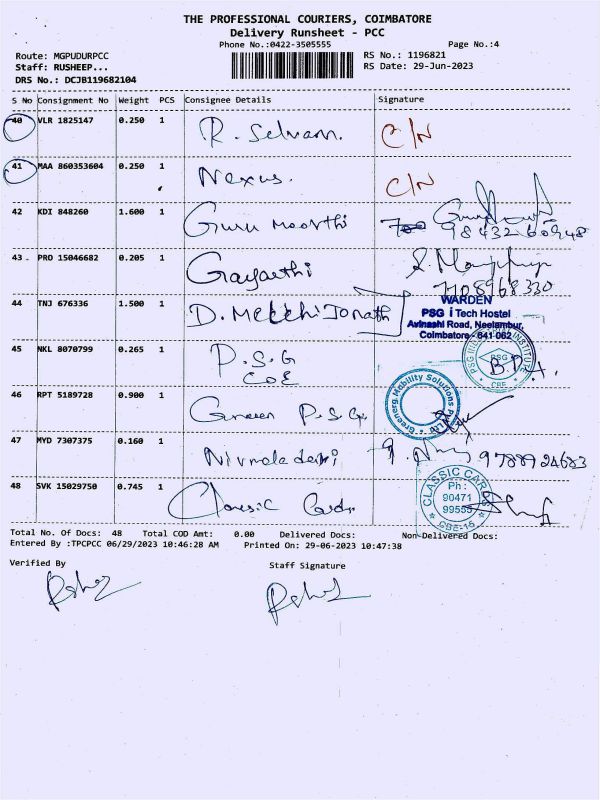 THE PROFESSIONAL COURIERS, COIMBATORE
Delivery Runsheet - PCC
Phone No.:0422-3505555 Page No.:4
Route: MGPUDURPCC RS No.: 1196821
Staff: RUSHEEP... RS Date: 29-Jun-2023
DRS No.: DCJB119682104
S No Consignment No Weight PCS Consignee Details Signature
40 VLR 1825147 0.250 1 R. Selvam. C/N
41 MAA 860353604 0.250 1 Nexus. C/N
42 KDI 848260 1.600 1 Guru moorthi
43 PRO 15046682 0.205 1 Gayaethi
7708968330
44 TNJ 676336 1.500 1 D. Melchi Jonath
WARDEN
PSG iTech Hostel
Avinashi Road, Neelambur,
Coimbatore - 641 062
45 NKL 8070799 0.265 1 P.S.G
COE
PSG
CBE
46 RPT 5189728 0.900 1 P.S.G
Greenerg Mobility Solutions Pvt Ltd
47 MYD 7307375 0.160 1 Nirmaladevi 9788924683
48 SVK 15029750 0.745 1 Classic Cards
CLASSIC CARDS
Ph:
90471
99555
CBE-15
Total No. Of Docs: 48 Total COD Amt: 0.00 Delivered Docs: Non-Delivered Docs:
Entered By :TPCPCC 06/29/2023 10:46:28 AM Printed On: 29-06-2023 10:47:38
Verified By Staff Signature